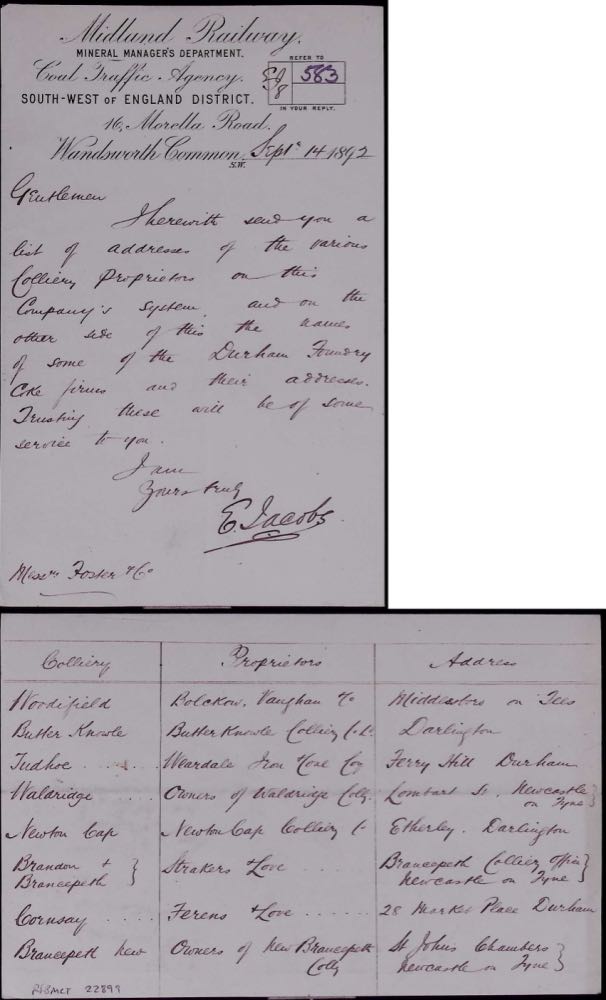 Midland Railway.
MINERAL MANAGER'S DEPARTMENT.
Coal Traffic Agency.
SOUTH-WEST OF ENGLAND DISTRICT.
REFER TO
583
IN YOUR REPLY.
16, Morella Road,
Wandsworth Common, Sept 14 1892
S.W.
Gentlemen
I herewith send you a
list of addresses of the various
Colliery Proprietors on this
Company's system, and on the
other side of this the names
of some of the Durham Foundry
Coke firms and their addresses.
Trusting these will be of some
service to you.
I am
Yours truly
E. Jacobs
Messrs Foster & Co
Colliery Proprietors Address
Woodifield Bolckow, Vaughan & Co Middlesbro on Tees
Butter Knowle Butter Knowle Colliery Co Ld Darlington
Tudhoe . . . . . Weardale Iron & Coal Coy Ferry Hill Durham
Waldridge . . . Owners of Waldridge Colly. Lombart St. Newcastle
on Tyne
Newton Cap Newton Cap Colliery Co Etherley. Darlington
Brandon + Strakers & Love . . . Brancepeth Colliery Office
Brancepeth Newcastle on Tyne
Cornsay . . . . Ferens & Love . . . . . . 28 Market Place Durham
Brancepeth New Owners of New Brancepeth St Johns Chambers
Colly Newcastle on Tyne
22899